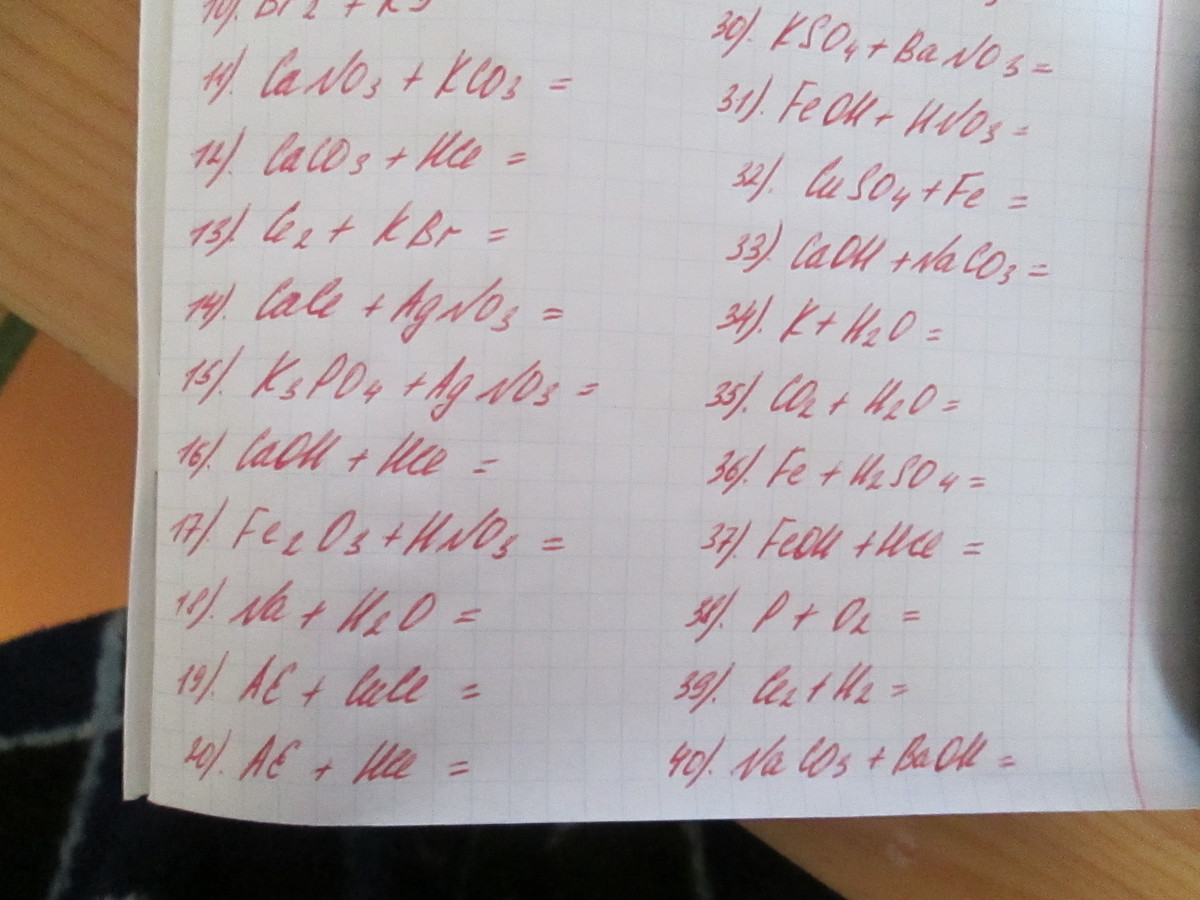 10). Br2 + KJ
11). CaNO3 + KCO3 =
12). CaCO3 + HCl =
13). Cl2 + KBr =
14). CaCl + AgNO3 =
15). K3PO4 + AgNO3 =
16). CaOH + HCl =
17). Fe2O3 + HNO3 =
18). Na + H2O =
19). Al + CuCl =
20). Al + HCl =
30). KSO4 + BaNO3 =
31). FeOH + HNO3 =
32). CuSO4 + Fe =
33). CaOH + NaCO3 =
34). K + H2O =
35). CO2 + H2O =
36). Fe + H2SO4 =
37). FeOH + HCl =
38). P + O2 =
39). Cl2 + H2 =
40). NaCO3 + BaOH =